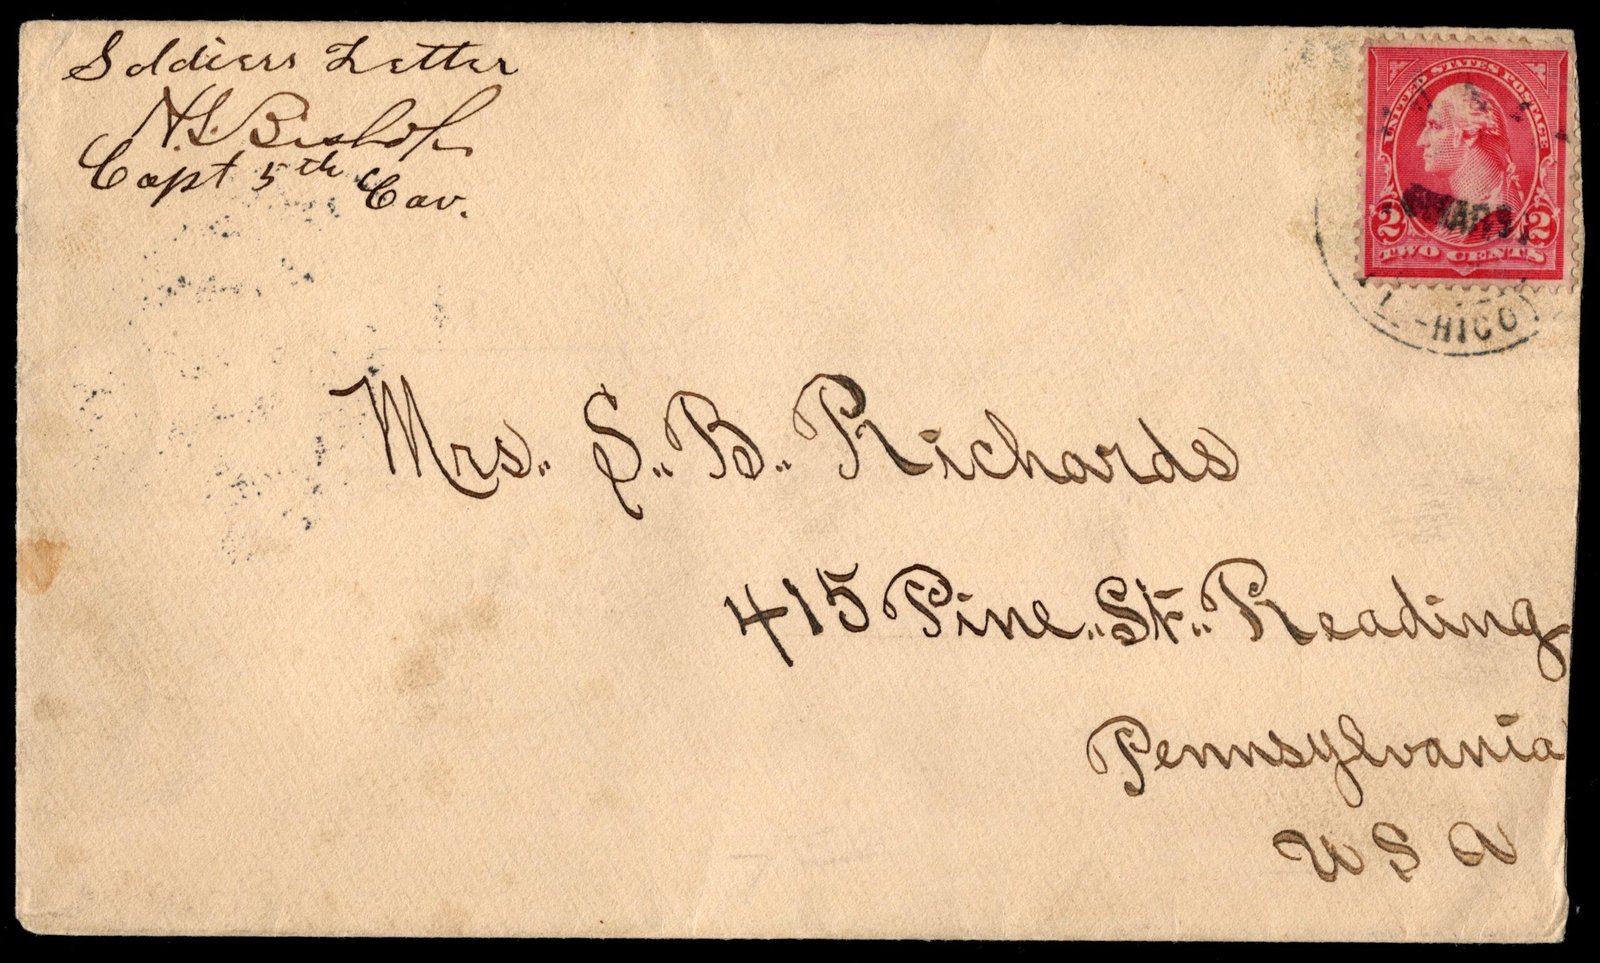 Soldiers Letter
H.S. Bishop
Capt 5th Cav.
UNITED STATES POSTAGE
2 2
TWO CENTS
Mrs. S. B. Richards
415 Pine St. Reading
Pennsylvania
U S A